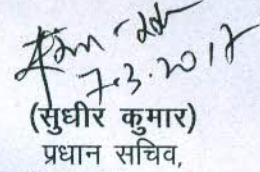 7.3.2017
(सुधीर कुमार)
प्रधान सचिव,